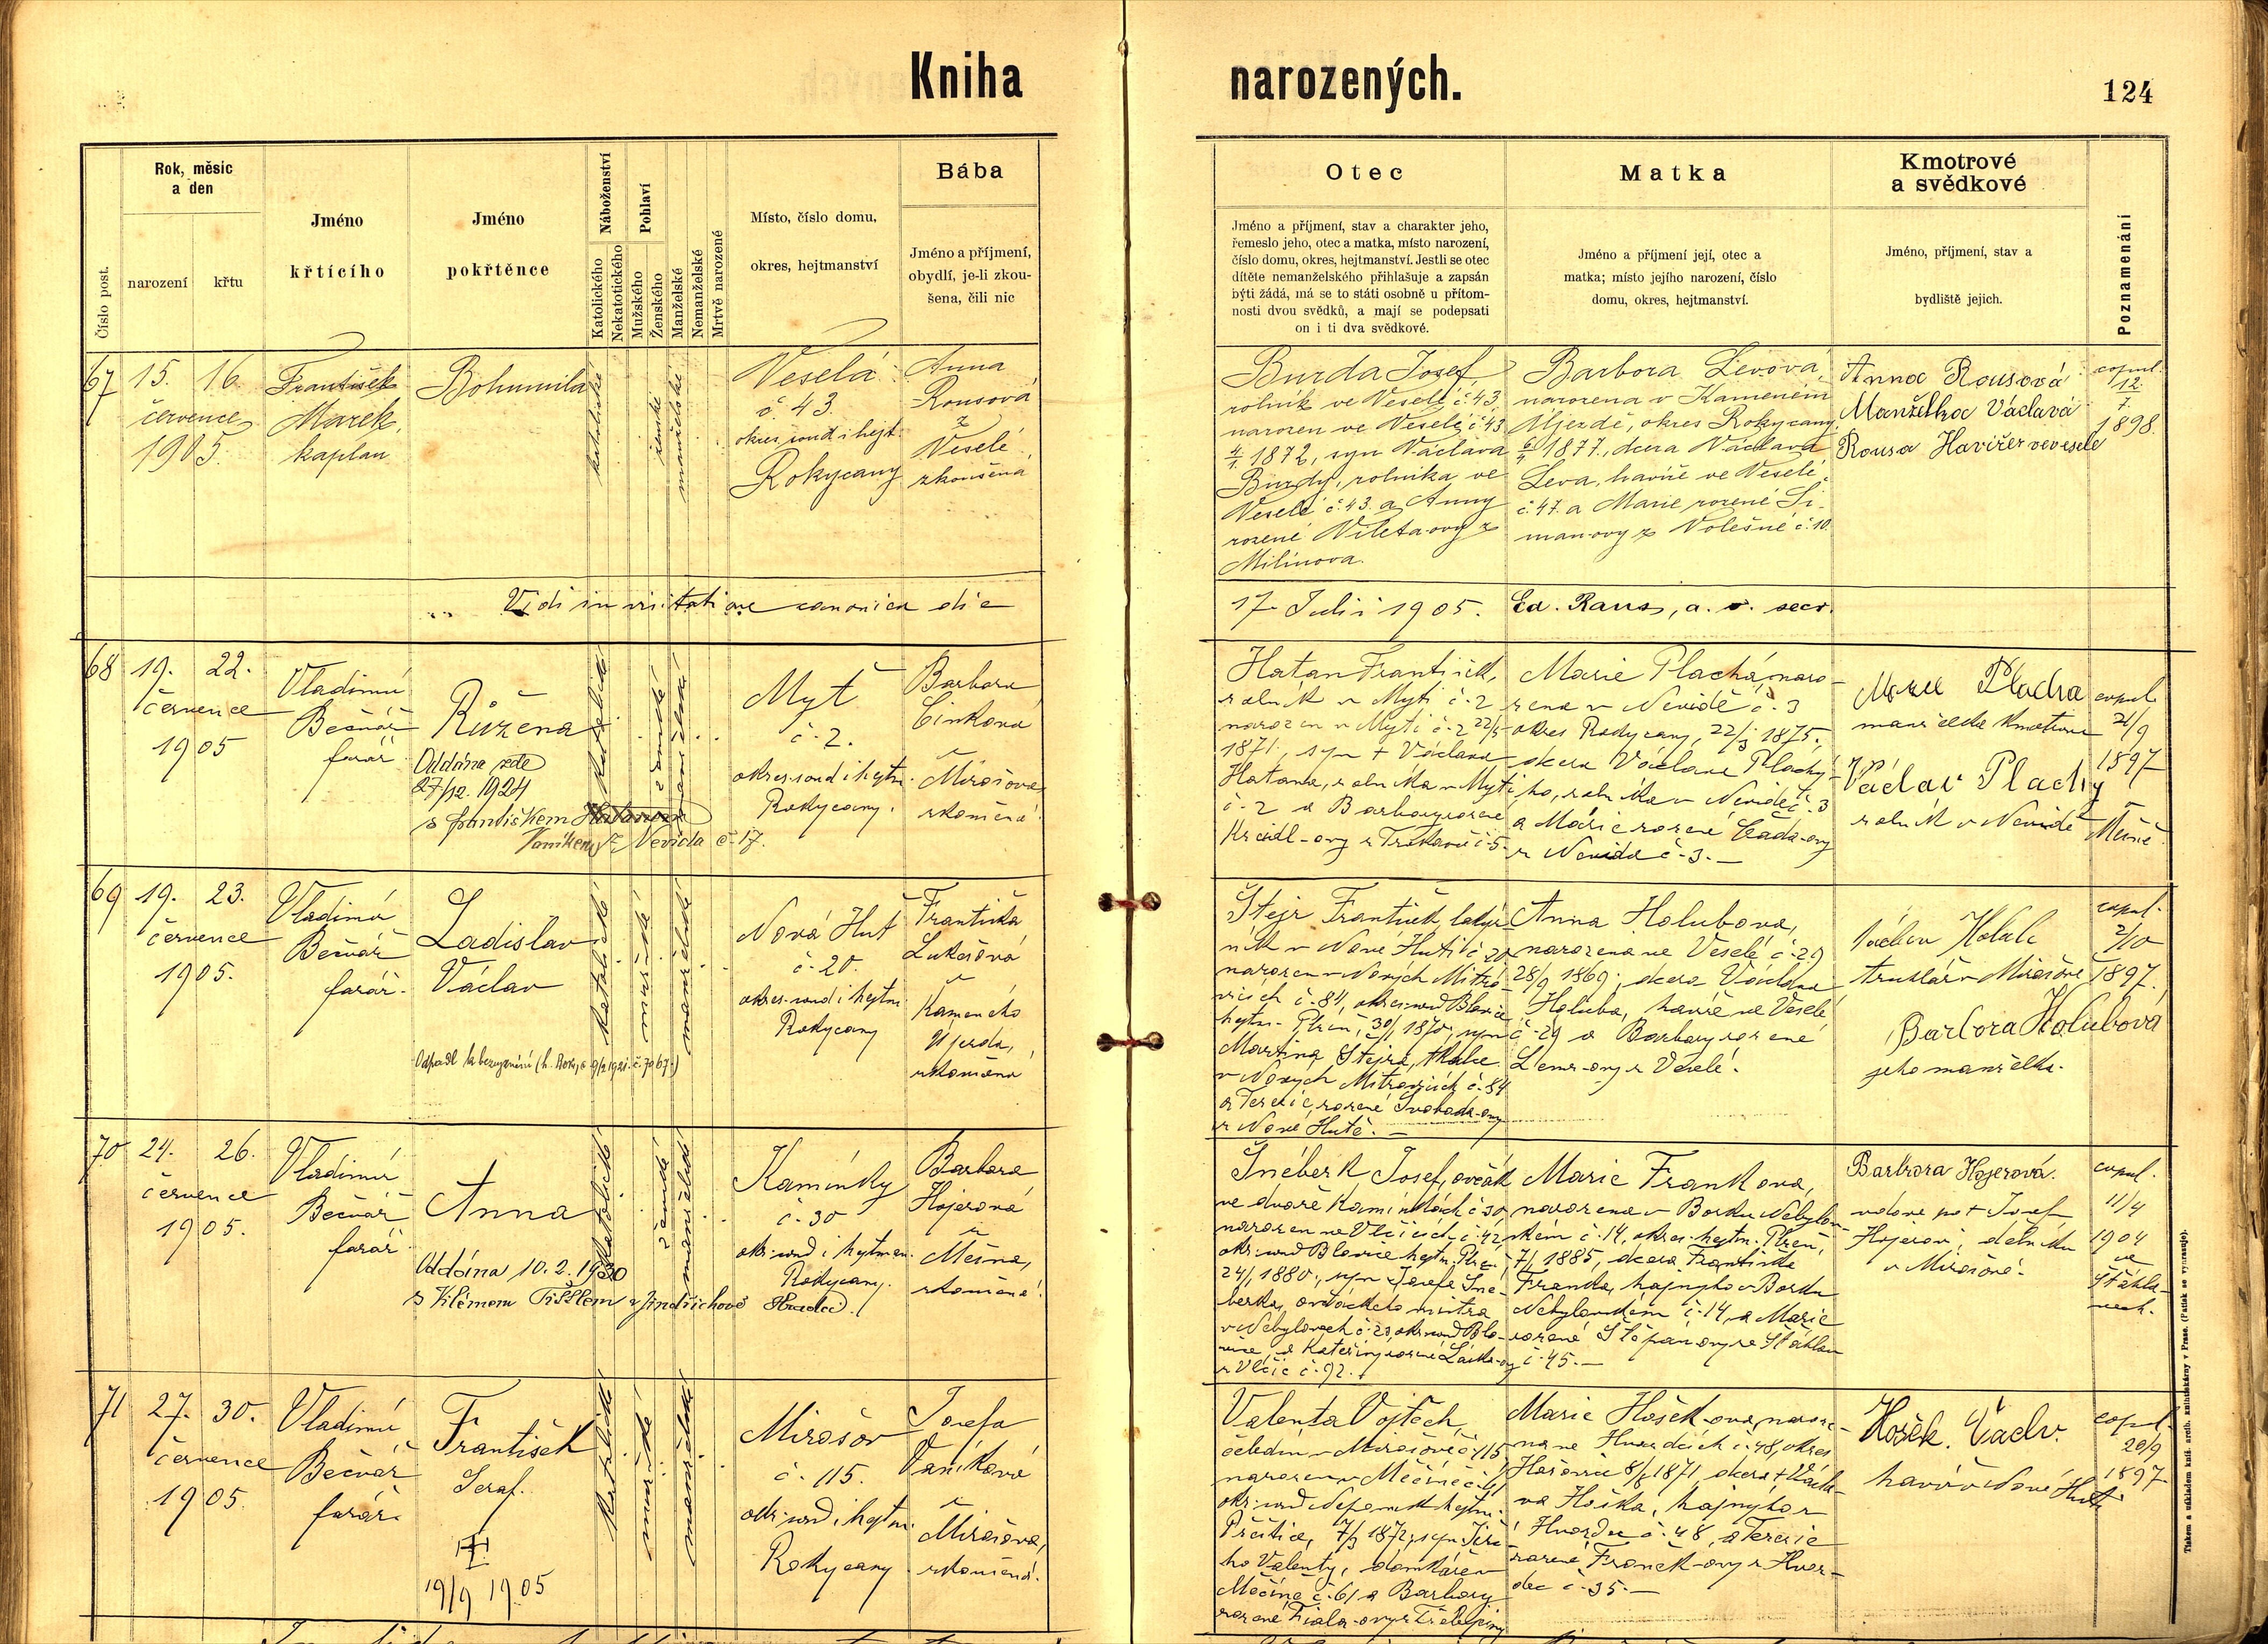 Kniha narozených.
124
Číslo post.
Rok, měsíc
a den
narození
křtu
Jméno
křtícího
Jméno
pokřtěnce
Náboženství
Katolického
Nekatolického
Pohlaví
Mužského
Ženského
Manželské
Nemanželské
Mrtvě narozené
Místo, číslo domu,
okres, hejtmanství
Bába
Jméno a příjmení,
obydlí, je-li zkou-
šena, čili nic
Otec
Jméno a příjmení, stav a charakter jeho,
řemeslo jeho, otec a matka, místo narození,
číslo domu, okres, hejtmanství. Jestli se otec
dítěte nemanželského přihlašuje a zapsán
býti žádá, má se to státi osobně u přítom-
nosti dvou svědků, a mají se podepsati
on i ti dva svědkové.
Matka
Jméno a příjmení její, otec a
matka; místo jejího narození, číslo
domu, okres, hejtmanství.
Kmotrové
a svědkové
Jméno, příjmení, stav a
bydliště jejich.
Poznamenání
67
15. 16.
července
1905.
František
Marek,
kaplan
Bohumila
katolické
ženské
manželské
Veselá
č. 43.
okres. soud i hejt.
Rokycany
Anna
Rousová
z
Veselé
zkoušená
Burda Josef,
rolník ve Veselé č. 43,
narozen ve Veselé č. 43
4/1. 1872, syn Václava
Burdy, rolníka ve
Veselé č. 43. a Anny
rozené Viletaovy z
Milínova.
Barbora Levova,
narozena v Kameném
Újezdě, okres Rokycany,
1877., dcera Václava
Leva, havíře ve Veselé
č. 47. a Marie rozené Ši-
manovy z Volešné č. 10.
Anna Rousová
Manželka Václava
Rousa Havířez veveselé
copul.
12.
7.
1898.
Vidi in visitatione canonica die
17 Julii 1905. Ed. Raus, a. v. secr.
68
19. 22.
července
1905
Vladimír
Bečvář
farář
Růžena
Oddána zde
27/12. 1924
s Františkem
Vaníkem z Nevida č. 17.
katolické
ženské
manželské
Myť
č. 2.
okres. soud i hejtm.
Rokycany.
Barbora
Cinková
z Mirošova,
zkoušená.
Hatan František,
rolník v Myti č. 2
narozen v Myti č. 2 22/5
1871., syn † Václava
Hatana, rolníka v Myti
č. 2 a Barbory rozené
Kreidl-ovy z Trokavce č. 5.
Marie Plachá, naro-
zena v Nevidě č. 3
okres Rokycany, 22/3 1875,
dcera Václava Plachý-
ho, rolníka v Nevidě č. 3
a Marie rozené Čada-ovy
z Nevida č. 3. —
Marie Plachá
manželka kmotrova
Václav Plachý
rolník v Nevidě
copul.
21/9
1897
v Mešně
69
19. 23.
července
1905.
Vladimír
Bečvář
farář.
Ladislav
Václav
katolické
mužské
manželské
Nová Huť
č. 20.
okres. soud i hejtm.
Rokycany
Františka
Lukešová
z
Kameného
Újezda,
zkoušena
Štejr František,
ník v Nové Huti č. 20
narozen v Nových Mitro-
vicích č. 84, okres. soud Blovice
hejtm. Plzeň, 30/1 1870, syn
Martina Štejra, tkalce
v Nových Mitrovicích č. 84
a Terezie, rozené Svoboda-ovy
z Nové Hutě. —
Anna Holubova,
narozena ve Veselé č. 29
28/9 1869, dcera Václava
Holuba, havíře ve Veselé
č. 29 a Barbory rozené
z Veselé.
Václav Holub
truhlář v Mirošově
Barbora Holubová
jeho manželka.
copul.
2/10
1897.
70
24. 26.
července
1905.
Vladimír
Bečvář
farář
Anna
Oddána 10. 2. 1930
s Vilémem Tišlem z Jindřichova Hradce.
katolické
ženské
manželské
Kamínky
č. 30
okr. soud i hejtman.
Rokycany.
Barbora
Hojerová
z
Mešna,
zkoušená.
Šnéberk Josef, ovčák
ve dvoře Kamínkách č. 30,
narozen ve Vlčicích, č. 42
okr. soud Blovice hejtm. Plzeň,
24/1 1880., syn Josefa Šné-
berka, ovčáckého mistra
v Nebylovech č. 23, okr. soud Blo-
vice, a Kateřiny rozené
z Vlčic č. 92.
Marie Frankova,
narozena v Borku Nebylov-
ském č. 14, okres. hejtm. Plzeň,
7/1 1885, dcera Františka
Franka, hajného v Borku
Nebylovském č. 14, a Marie
rozené Štěpan-ovy ze Šťáhlav
č. 45. —
Barbora Hojerová.
vdova po † Josefu
Hojerovi, dělníku
v Mirošově.
copul.
11/4
1904
ve
Šťáhla-
vech.
71
27. 30.
července
1905.
Vladimír
Bečvář
farář.
František
Seraf.
†
19/9 1905
katolické
mužské
manželské
Mirošov
č. 115.
okr. soud i hejtm.
Rokycany
Josefa
Vaníková
z
Mirošova,
zkoušená.
Valenta Vojtěch,
čeledín v Mirošově č. 115
narozen v Měčíně č. 61
okr. soud Nepomuk hejtm.
Přeštice, 7/3 1872, syn Jiří-
ho Valenty, domkáře v
Měčíně č. 61 a Barbory
rozené Fiala-ovy z
Marie Hošek-ova, naroze-
na ve Hvozdcích č. 48, okres
Hořovice 8/8 1871, dcera † Václa-
va Hoška, hajného z
Hvozdce č. 48, a Terezie
rozené Franěk-ovy z Hvoz-
dce č. 35. —
Hošek. Václv.
havíř v Nové Huti
copul.
20/9
1897
Tiskem a nákladem knih. arcib. knihtiskárny v Praze. (Patisk se vyhrazuje).